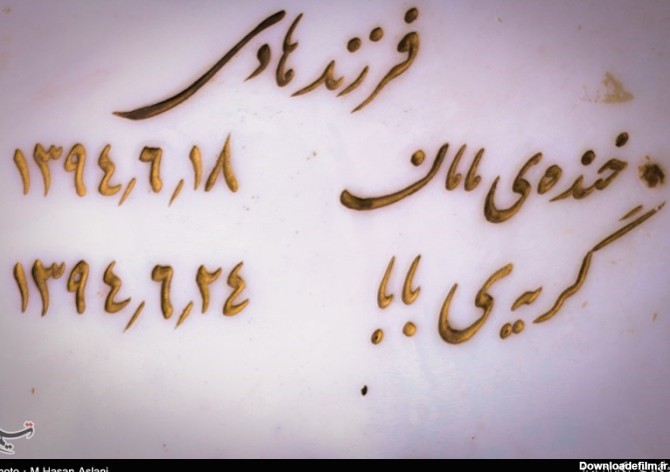 فرزند هادی
خنده‌ی مامان ۱۳۹۴٫۶٫۱۸
گریه‌ی بابا ۱۳۹۴٫۶٫۲۴
تسنیم
Photo : M.Hasan Aslani
Downloadefilm.ir